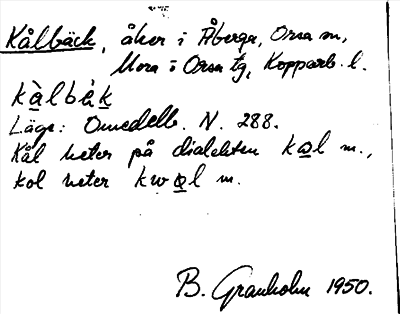 Kålbäck, åker i Åberga, Orsa sn,
Mora o Orsa tg, Kopparb. l.
kàlbàk
Läge: Omedelb. N. 288.
Kål heter på dialekten kal m.,
kol heter kwal n.
B. Granholm 1950.